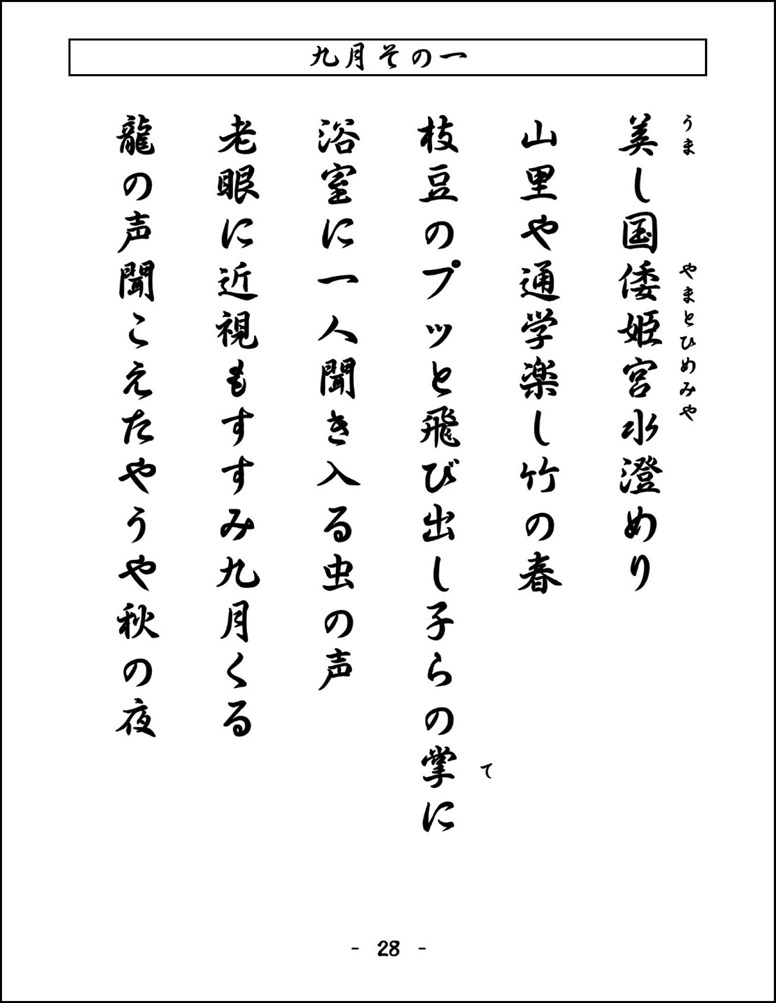 九月その一
美し国倭姫宮水澄めり
うま やまとひめみや
山里や通学楽し竹の春
枝豆のプッと飛び出し子らの掌に
て
浴室に一人聞き入る虫の声
老眼に近視もすすみ九月くる
龍の声聞こえたやうや秋の夜
- 28 -